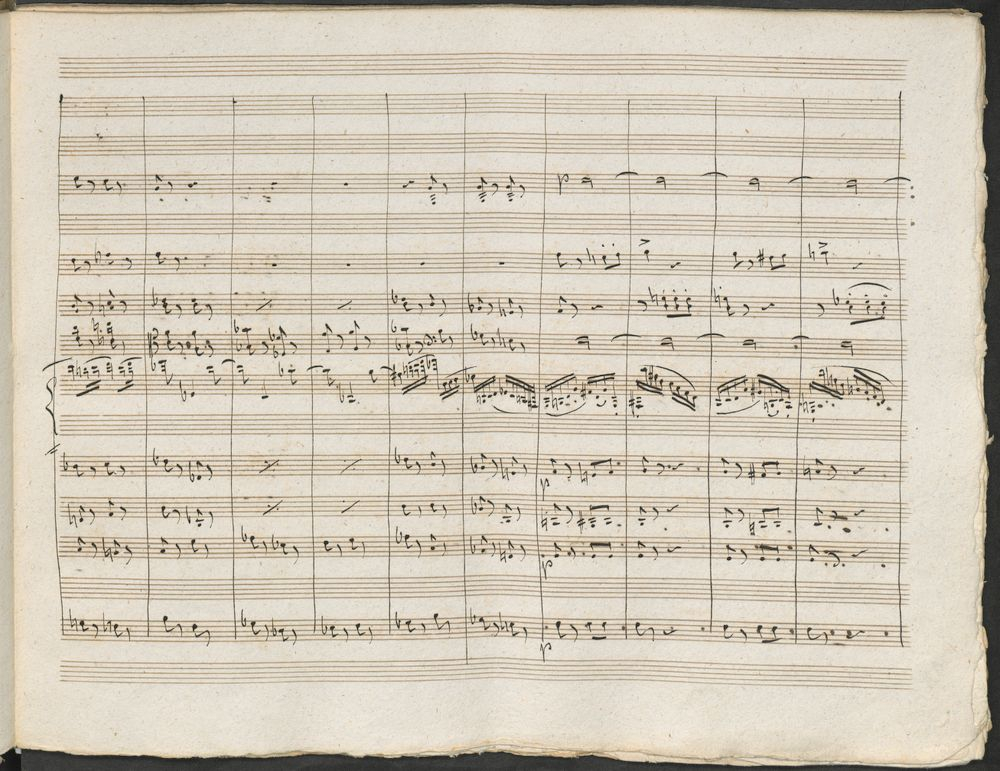 p
p
p
p